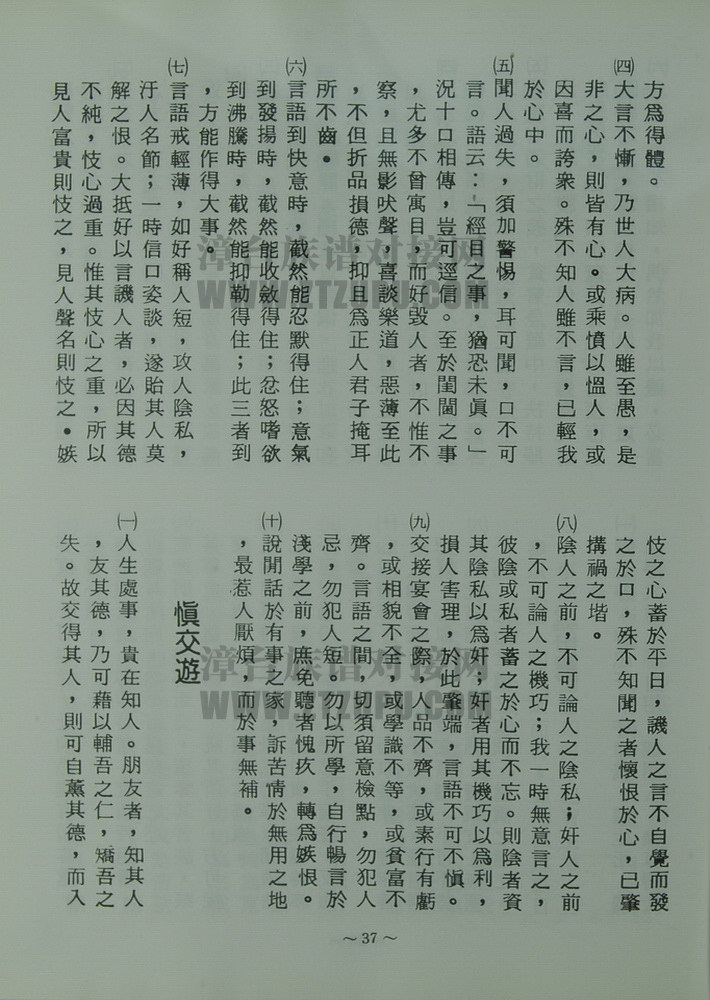 方爲得體。
㈣大言不慚，乃世人大病。人雖至愚，是
非之心，則皆有心。或乘憤以慍人，或
因喜而誇衆。殊不知人雖不言，已輕我
於心中。
㈤聞人過失，須加警惕，耳可聞，口不可
言。語云：「經目之事，猶恐未眞。」
況十口相傳，豈可逕信。至於閨閫之事
，尤多不曾寓目，而好毀人者，不惟不
察，且無影吠聲，喜談樂道，惡薄至此
，不但折品損德，抑且爲正人君子掩耳
所不齒。
㈥言語到快意時，截然能忍默得住；意氣
到發揚時，截然能收斂得住；忿怒嗜欲
到沸騰時，截然能抑勒得住；此三者到
，方能作得大事。
㈦言語戒輕薄，如好稱人短，攻人陰私，
汙人名節；一時信口姿談，遂貽其人莫
解之恨。大抵好以言譏人者，必因其德
不純，忮心過重。惟其忮心之重，所以
見人富貴則忮之，見人聲名則忮之。嫉
忮之心蓄於平日，譏人之言不自覺而發
之於口，殊不知聞之者懷恨於心，已肇
搆禍之堦。
㈧陰人之前，不可論人之陰私；奸人之前
，不可論人之機巧；我一時無意言之，
彼陰或私者蓄之於心而不忘。則陰者資
其陰私以爲奸；奸者用其機巧以爲利，
損人害理，於此肇端，言語不可不愼。
㈨交接宴會之際，人品不齊，或素行有虧
，或相貌不全，或學識不等，或貧富不
齊。言語之間，切須留意檢點，勿犯人
忌，勿犯人短。勿以所學，自行暢言於
淺學之前，庶免聽者愧疚，轉爲嫉恨。
㈩說閒話於有事之家，訴苦情於無用之地
，最惹人厭煩，而於事無補。
愼交遊
㈠人生處事，貴在知人。朋友者，知其人
，友其德，乃可藉以輔吾之仁，矯吾之
失。故交得其人，則可自薰其德，而入
～37～
漳台族谱对接网
WWW.ZTZUPU.COM
漳台族谱对接网
WWW.ZTZUPU.COM